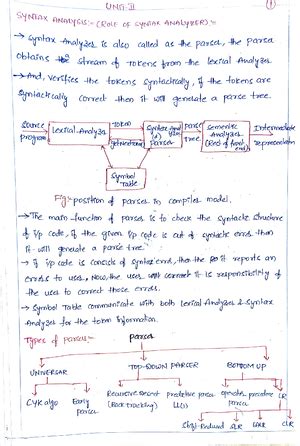 UNIT-II
①
SYNTAX ANALYSIS:- (ROLE OF SYNTAX ANALYZER):-
→ Syntax Analyzer is also called as the parser, the parser
obtains stream of tokens from the lexical Analyzer.
→ And, verifies the tokens syntactically, if the tokens are
syntactically correct then it will generate a parse tree.
Source program
Lexical Analyzer
Token
Parser
Parse tree
Semantic Analyzer
(Rest of front end)
Intermediate
Symbol Table
Fig:- position of parser in compiler model.
→ The main function of parser is to check the syntactic structure
of i/p code, if the given i/p code is out of syntactic error then
it will generate a parse tree.
→ If i/p code is consists of syntax error, then the it reports an
errors to user, Now, the user it is responsibility of
the user to correct those errors.
→ Symbol Table communicate with both lexical Analyzer & syntax
Analyzer for the token information.
Types of parsers:-
Parser
UNIVERSAL
TOP-DOWN PARSER
BOTTOM UP
CYK algo
Early parser
Recursive
(Back tracking)
predictive parser
LL(1)
operator
parser
LR
SLR
LALR
CLR